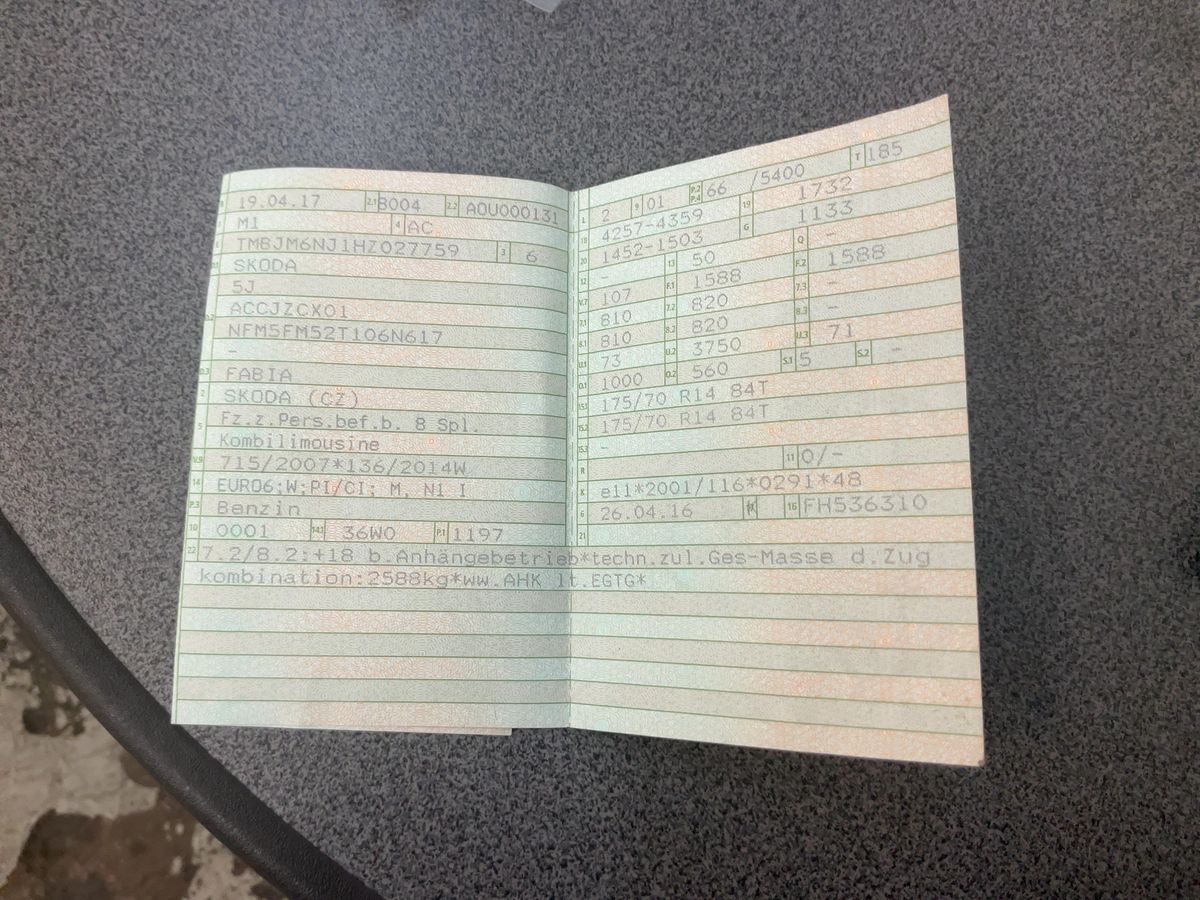 B 19.04.17 2.1 8004 2.2 AOU000131
M1 4 AC
TMBJM6NJ1HZ027759 3 6
SKODA
5J
ACCJZCX01
NFM5FM52T106N617
-
D.3 FABIA
2 SKODA (CZ)
5 Fz.z.Pers.bef.b. 8 Spl.
Kombilimousine
V.9 715/2007*136/2014W
14 EURO6;W;PI/CI; M, N1 I
P.3 Benzin
10 0001 14.1 36W0 P.1 1197
L 2 9 01 P.2 P.4 66 /5400 T 185
18 4257-4359 19 1732
20 1452-1503 G 1133
12 - 13 50 Q -
V.7 107 F.1 1588 F.2 1588
7.1 810 7.2 820 7.3 -
8.1 810 8.2 820 8.3 -
U.1 73 U.2 3750 U.3 71
O.1 1000 O.2 560 S.1 5 S.2 -
15.1 175/70 R14 84T
15.2 175/70 R14 84T
15.3 -
R 11 0/-
K e11*2001/116*0291*48
6 26.04.16 17 K 16 FH536310
21
22 7.2/8.2:+18 b.Anhängebetrieb*techn.zul.Ges-Masse d.Zug
kombination:2588kg*ww.AHK lt.EGTG*